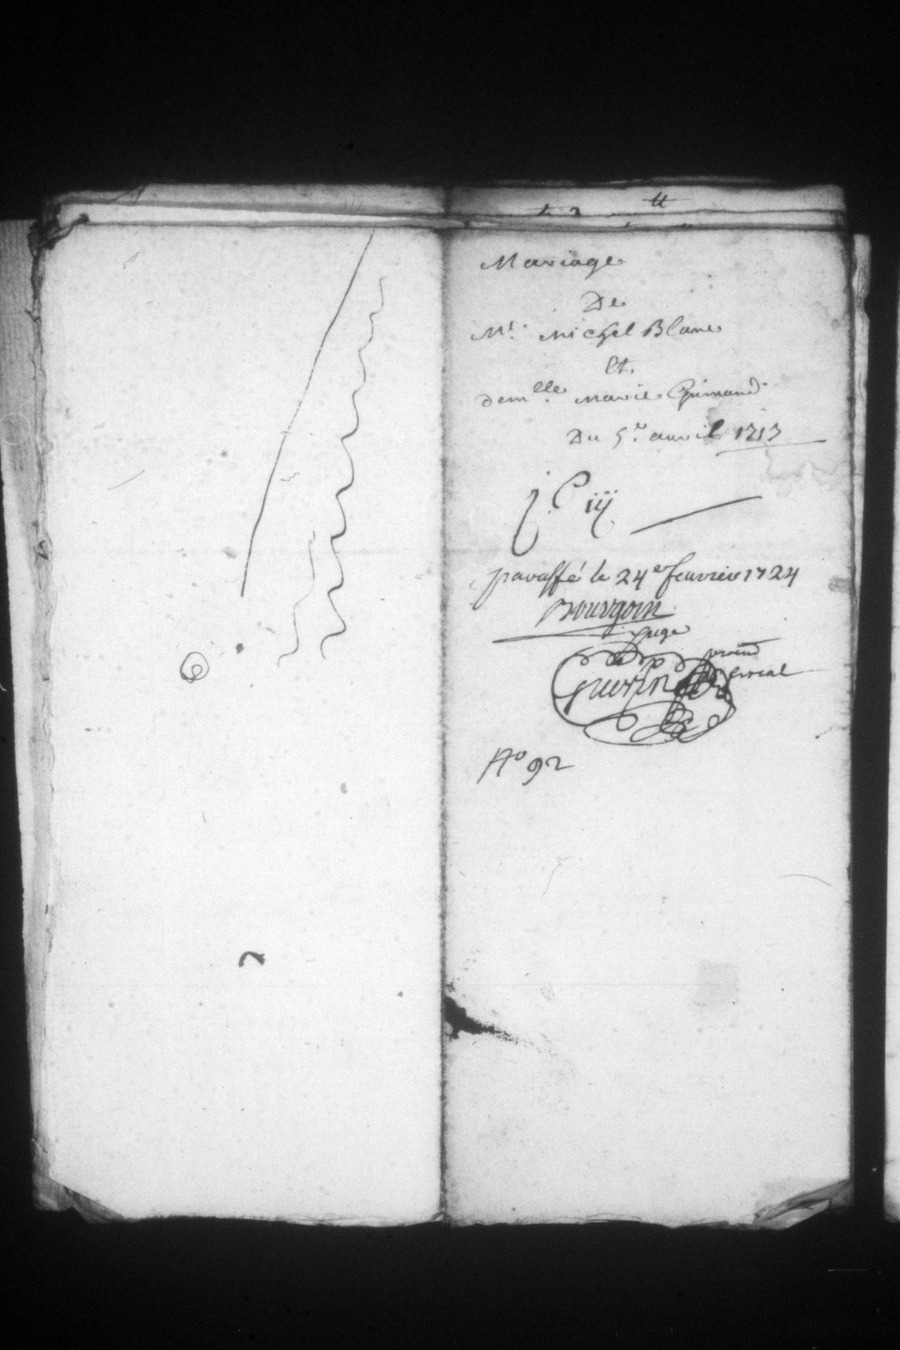 Mariage
De
Mr. Michel Blanc
Et
demlle. marie Grimaud
Du 5e. auril 1713
C iij
paraffé le 24e feurier 1724
Bourgoin
Juge
guerin
No 92